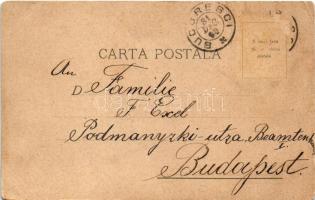 BUCURESCI
CARTA POSTALA
An
D Familie
F. Exel
Podmanyzki-utza, Beamten
Budapest.